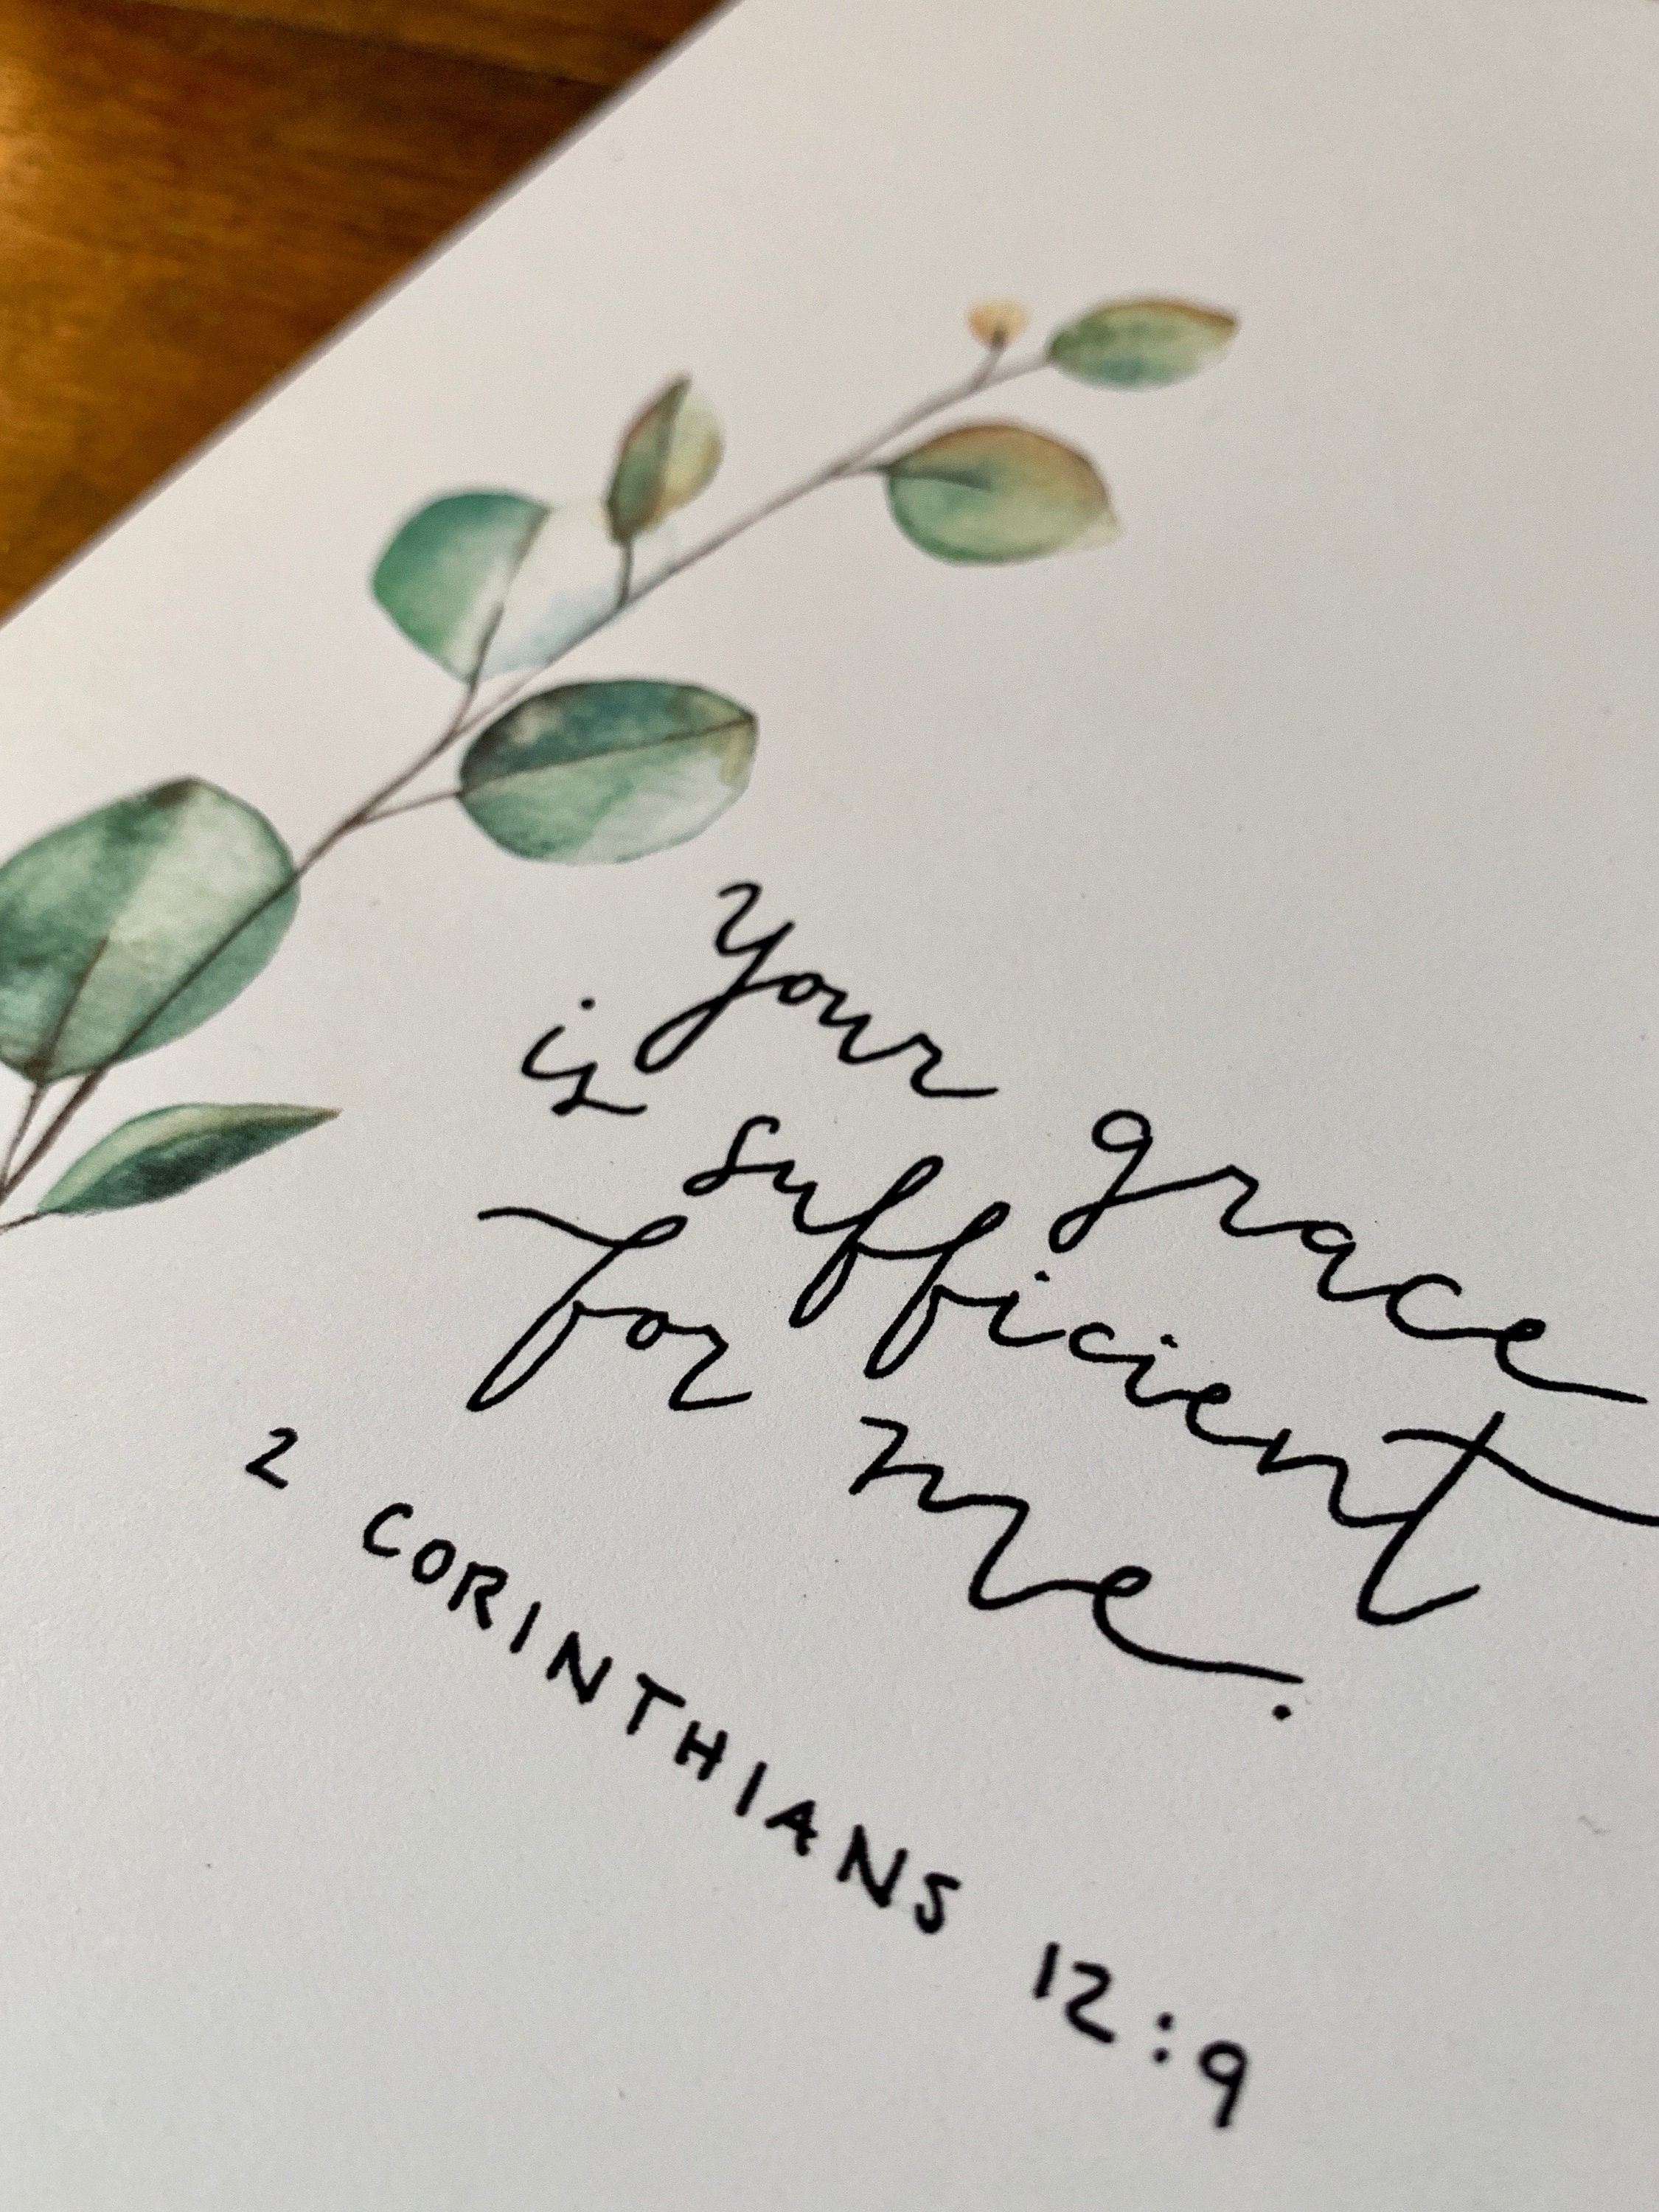 Your grace
is sufficient
for me.
2 CORINTHIANS 12:9